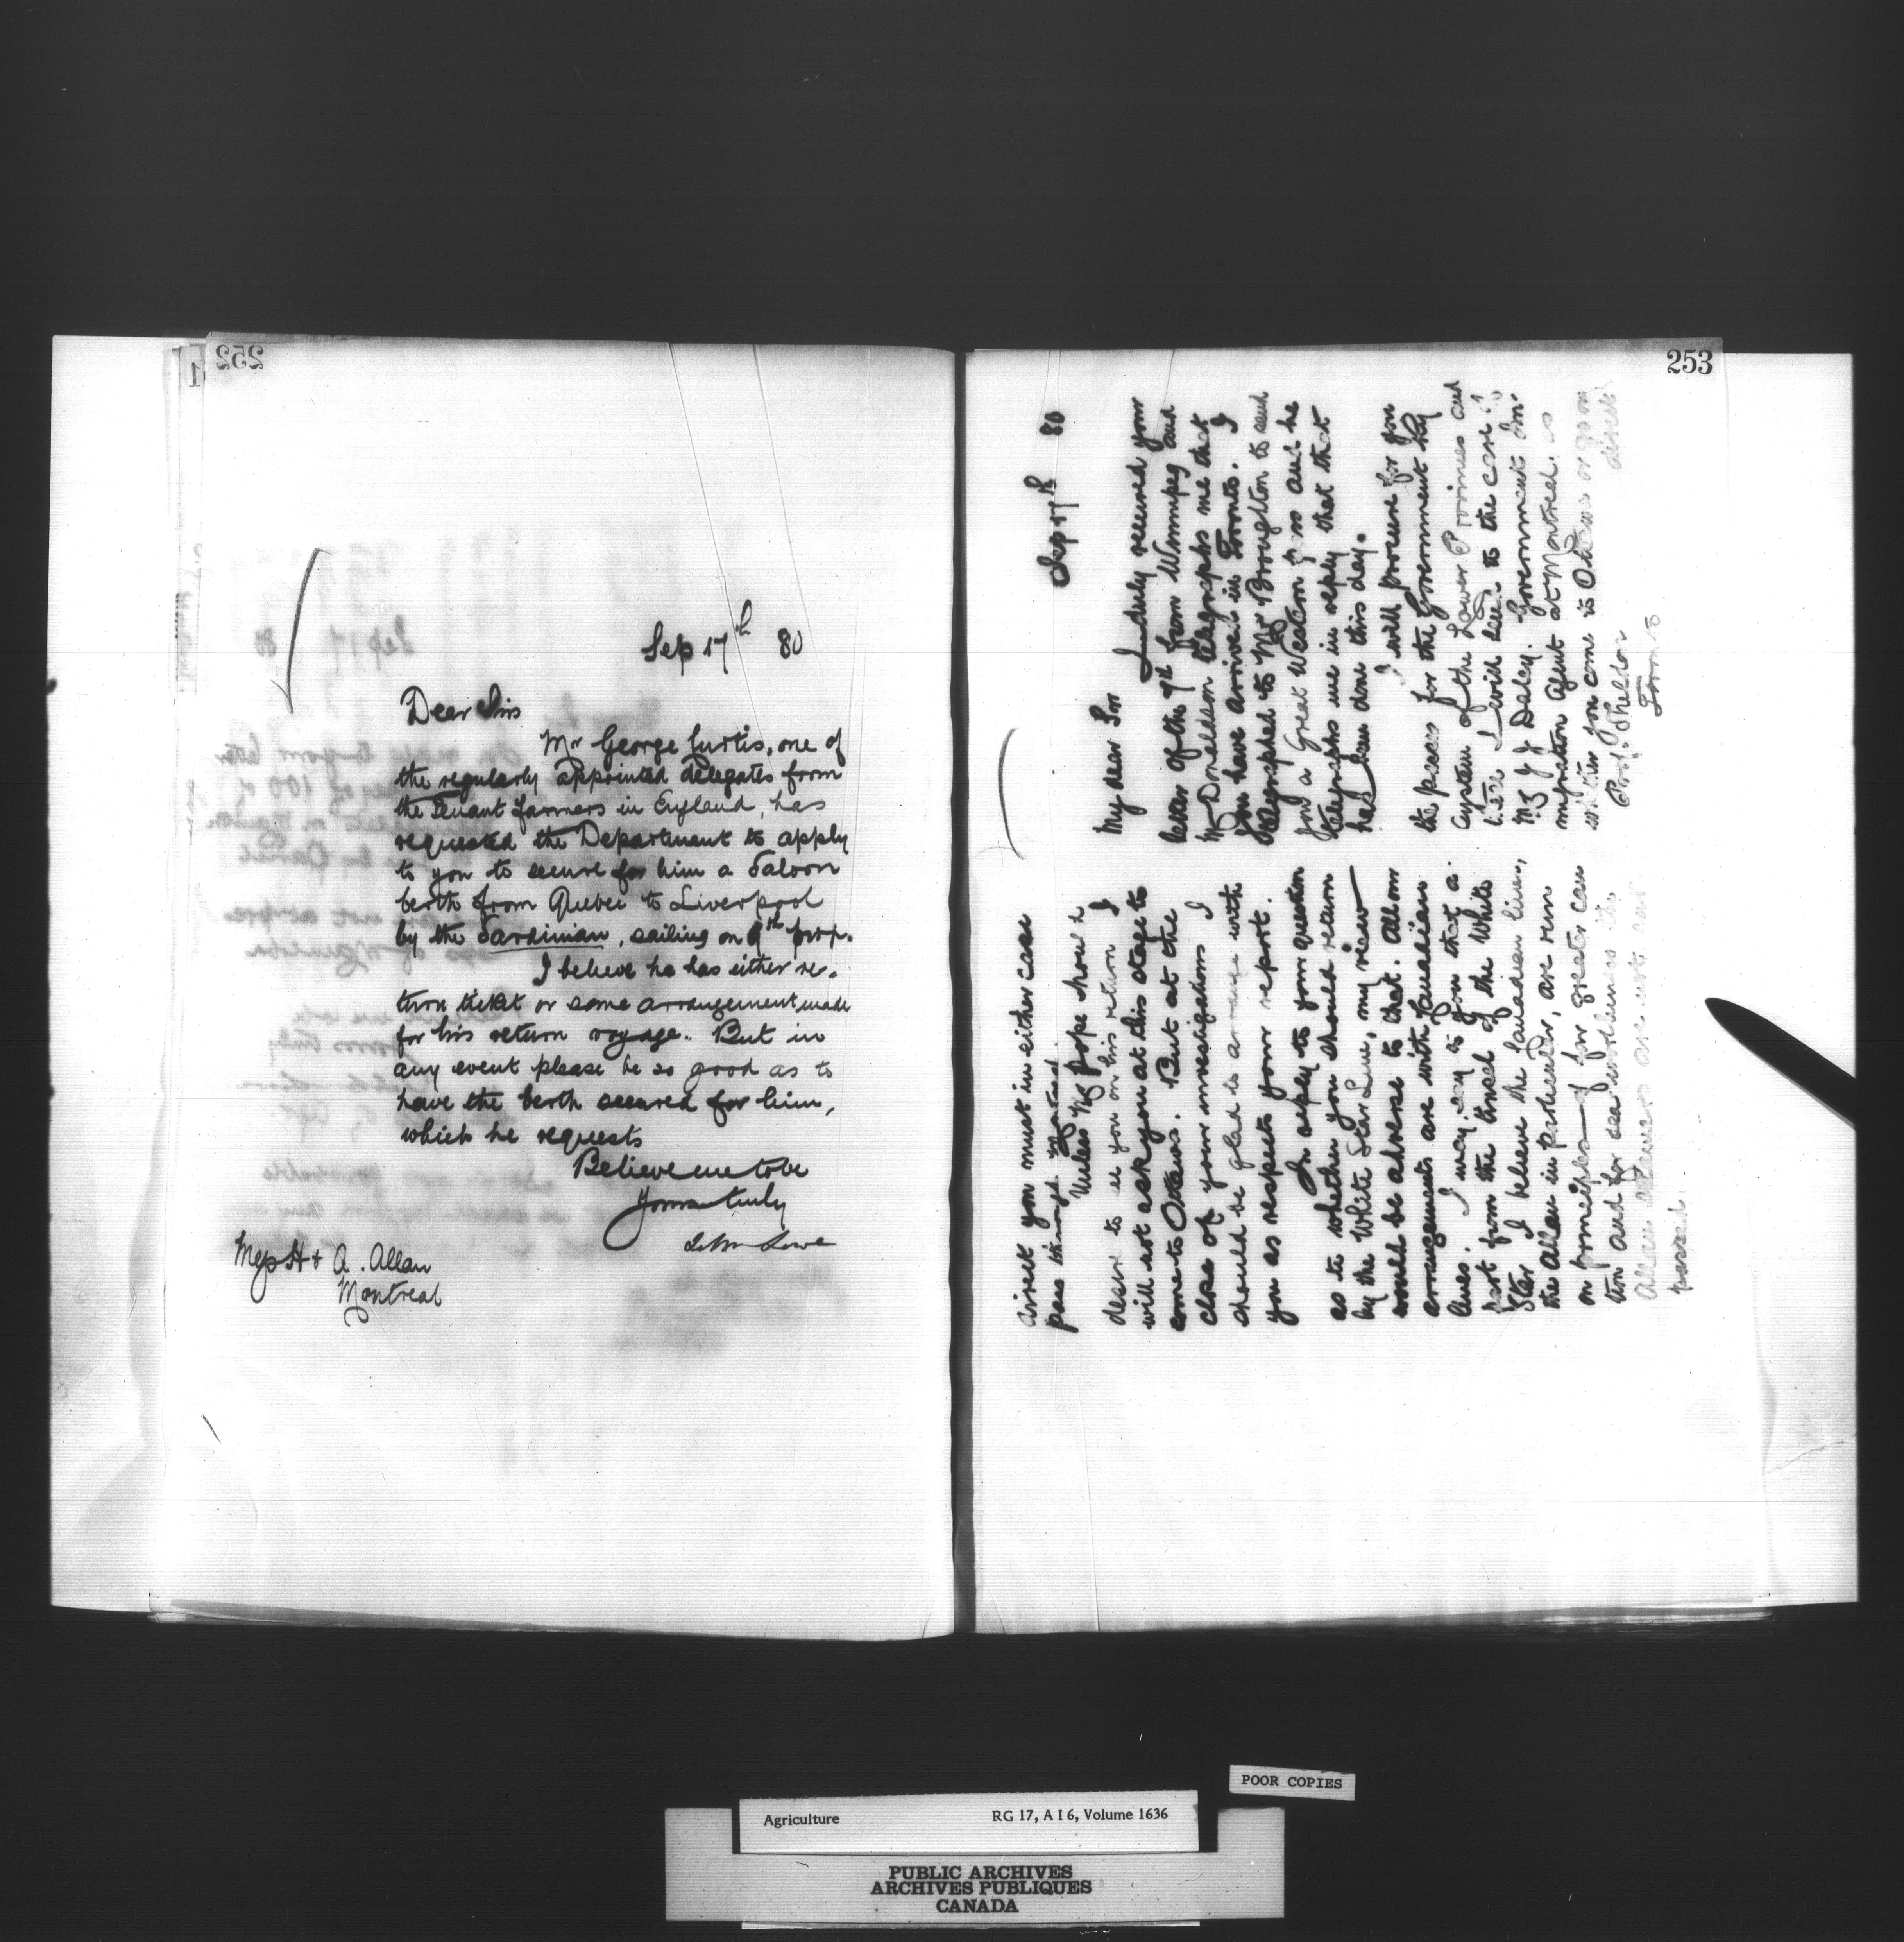 252
Sep 17th 80
Dear Sirs
Mr George Curtis, one of
the regularly appointed delegates from
the Tenant farmers in England, has
requested the Department to apply
to you to secure for him a Saloon
berth from Quebec to Liverpool
by the Sardinian, sailing on 9th prox.
I believe he has either re-
turn ticket or some arrangement made
for his return voyage. But in
any event please be so good as to
have the berth secured for him,
which he requests
Believe me to be
Yours truly
John Lowe
Messrs H & A. Allan
Montreal
253
Sep 17th 80
My dear Sir
I duly received your
letter of the 7th from Winnipeg and
McDonaldson telegraphs me that
you have arrived in Toronto. I
telegraphed to Mr Broughton to send
you a Great Western pass and he
telegraphs me in reply that that
has been done this day.
I will procure for you
the passes for the Government Ry
System of the Lower Provinces and
these I will leave to the care of
Mr J J Daley. Government Im-
migration Agent at Montreal. as
whether you come to Ottawa or go on
direct
Prof. Sheldon
Toronto
direct you must in either case
pass through Montreal.
Unless Mr Pope should
desire to see you on his return I
will not ask you at this stage to
come to Ottawa. But at the
close of your investigations I
should be glad to arrange with
you as respects your report.
In reply to your question
as to whether you should return
by the White Star Line, my view
would be adverse to that. All our
arrangements are with Canadian
lines. I may say to you that a-
part from the tinsel of the White
Star I believe the Canadian lines,
the Allan in particular, are run
on principles of far greater cau
tion and for sea worthiness the
Allan steamers are not
passed.
POOR COPIES
Agriculture RG 17, A I 6, Volume 1636
PUBLIC ARCHIVES
ARCHIVES PUBLIQUES
CANADA